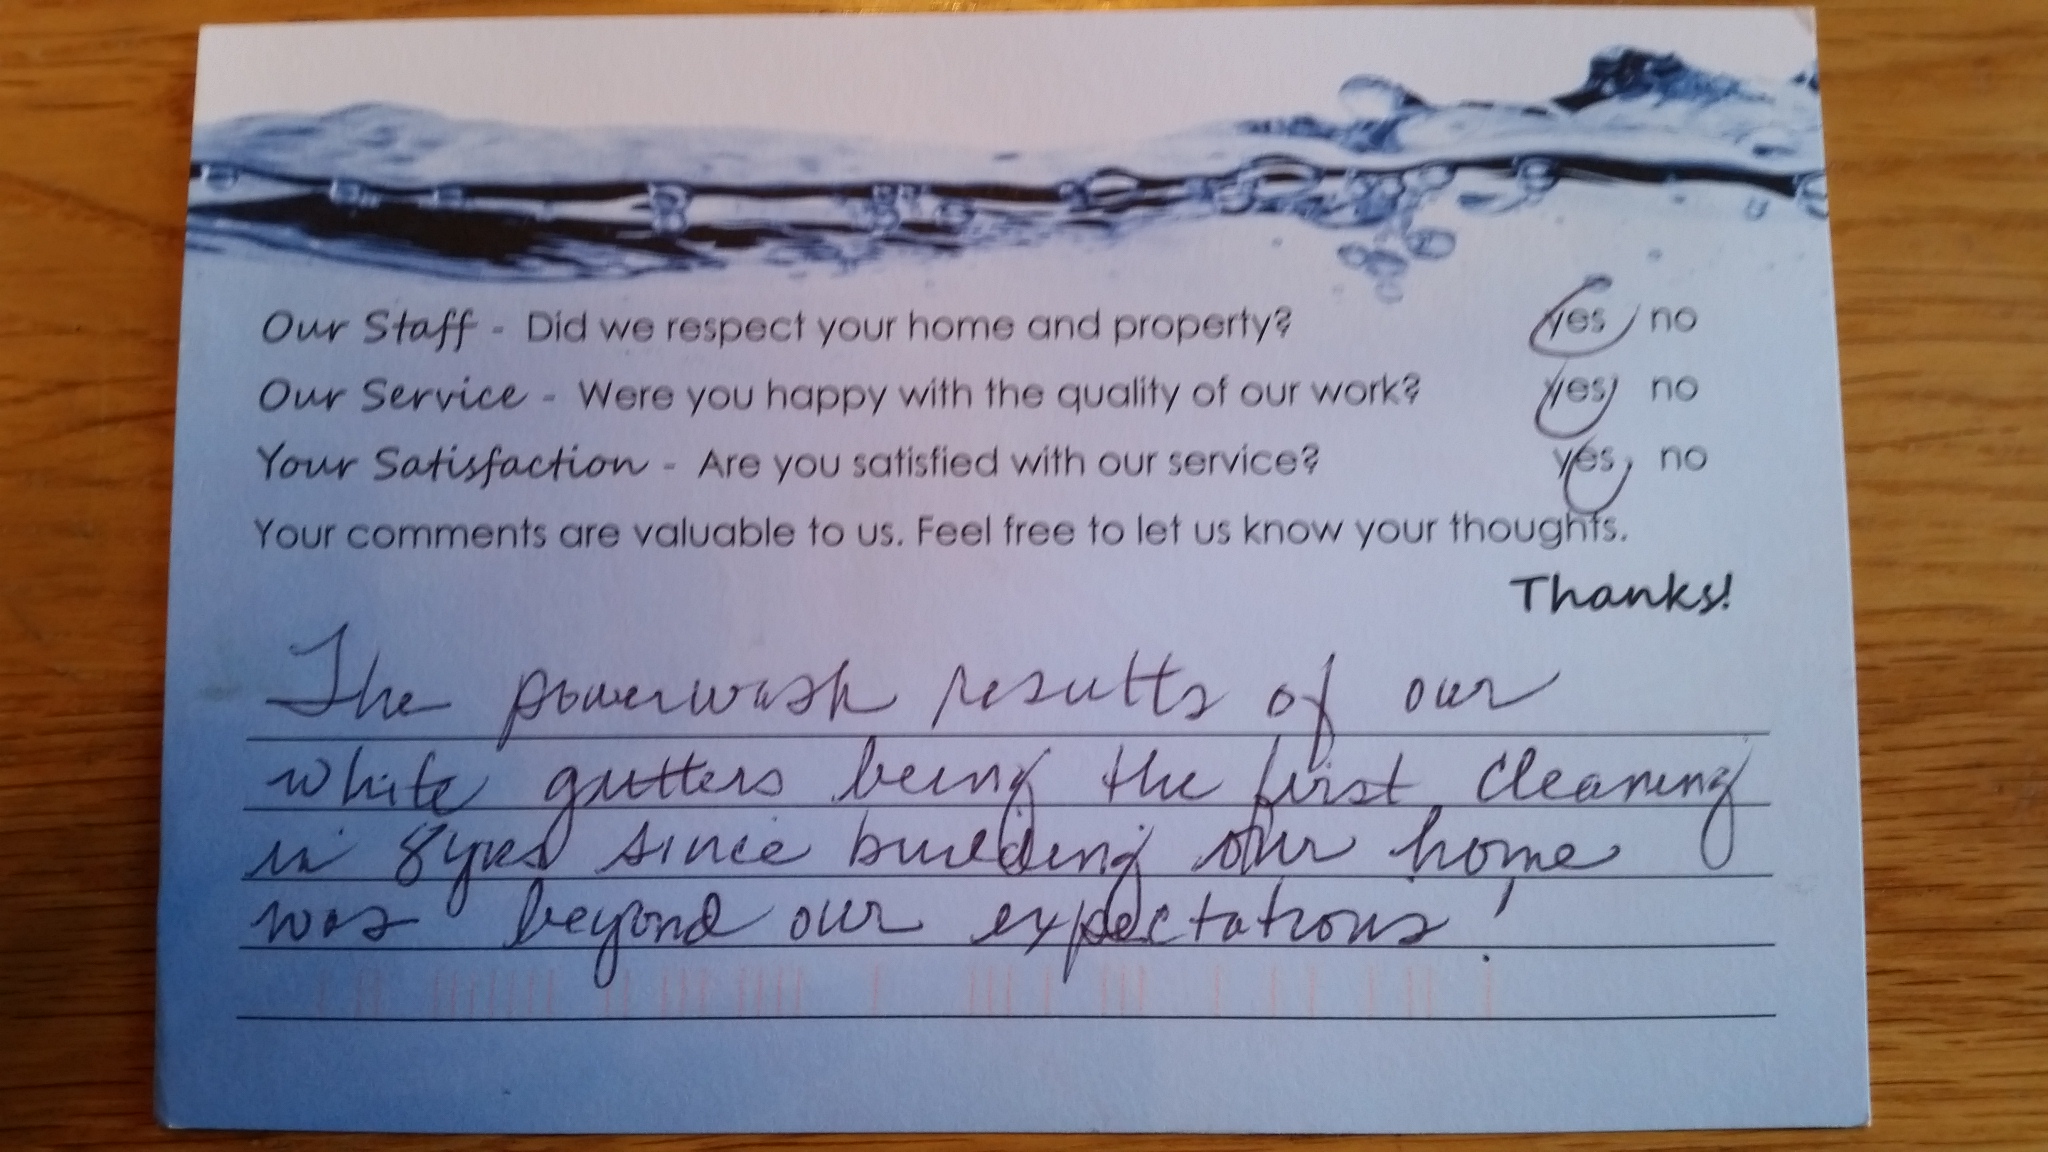 Our Staff - Did we respect your home and property? yes no
Our Service - Were you happy with the quality of our work? yes no
Your Satisfaction - Are you satisfied with our service? yes no
Your comments are valuable to us. Feel free to let us know your thoughts.
Thanks!
The powerwash results of our
white gutters being the first cleaning
in 8yrs since building our home
was beyond our expectations!